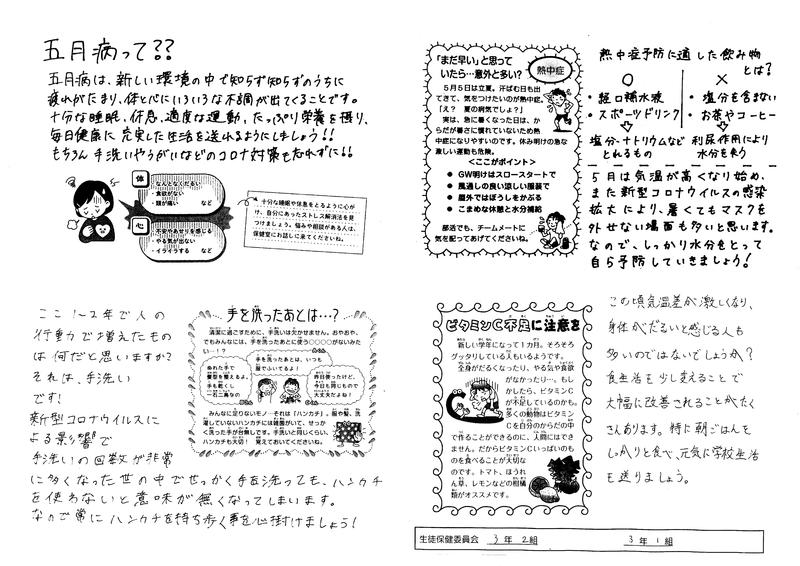 五月病って??
五月病は、新しい環境の中で知らず知らずのうちに
疲れがたまり、体と心にいろいろな不調が出てくることです。
十分な睡眠、休息、適度な運動、たっぷり栄養を摂り、
毎日健康に充実した生活を送れるようにしましょう!!
もちろん手洗いやうがいなどのコロナ対策も忘れずに!!
体
なんとなくだるい
・食欲がない
・頭が痛い など
心
・不安やあせりを感じる
・やる気が出ない
・イライラする など
十分な睡眠や休息をとるように心が
け、自分にあったストレス解消法を見
つけましょう。悩みや相談がある人は、
保健室にお話しに来てくださいね。
「まだ早い」と思って
いたら…意外と多い?
熱中症
5月5日は立夏。汗ばむ日も出
てきて、気をつけたいのが熱中症。
「え? 夏の病気でしょ?」
実は、急に暑くなった日は、か
らだが暑さに慣れていないため熱
中症になりやすいのです。休み明けの急な
激しい運動も危険。
<ここがポイント>
● GW明けはスロースタートで
● 風通しの良い涼しい服装で
● 屋外ではぼうしをかぶる
● こまめな休憩と水分補給
部活でも、チームメートに
気を配ってあげてくださいね。
熱中症予防に適した飲み物
とは?
○ ×
・経口補水液 ・塩分を含まない
・スポーツドリンク ・お茶やコーヒー
塩分・ナトリウムなど 利尿作用により
とれるもの 水分を失う
5月は気温が高くなり始め、
また新型コロナウイルスの感染
拡大により、暑くてもマスクを
外せない場面も多いと思います。
なので、しっかり水分をとって
自ら予防していきましょう!
ここ1~2年で人の
行動力で増えたもの
は何だと思いますか?
それは、手洗い
です!
新型コロナウイルスに
よる影響で
手洗いの回数が非常
に多くなった世の中でせっかく手を洗っても、ハンカチ
を使わないと意味が無くなってしまいます。
なので常にハンカチを持ち歩く事を心掛けましょう!
手を洗ったあとは…?
清潔に過ごすために、手洗いは欠かせません。おやおや、
でもみんなには、手を洗ったあとに使う○○○○がないみた
い…!?
ぬれた手で
髪型を整えるよ。
手も乾くし
一石二鳥なの
手を洗ったあとは、いつも
服でふいてるよ!
昨日使ったけど、
今日も同じもので
大丈夫だよね!
みんなに足りないモノ…それは「ハンカチ」。服や髪、洗
濯していないハンカチには雑菌がいて、せっか
く洗った手が台無しです。手洗いと同じくらい、
ハンカチも大切! 覚えておいてくださいね。
ビタミンC不足に注意を
新しい学年になって1カ月。そろそろ
グッタリしている人もいるようです。
全身がだるくなったり、やる気や食欲
がなかったり…。もし
かしたら、ビタミンC
が不足しているのかも。
多くの動物はビタミン
Cを自分のからだの中
で作ることができるのに、人間にはでき
ません。だからビタミンCいっぱいのも
のを食べることが大切な
のです。トマト、ほうれ
ん草、レモンなどの柑橘
類がオススメです。
この頃気温差が激しくなり、
身体がだるいと感じる人も
多いのではないでしょうか?
食生活を少し変えることで
大幅に改善されることがたく
さんあります。特に朝ごはんを
しっかりと食べ、元気に学校生活
を送りましょう。
生徒保健委員会 3年2組 3年1組